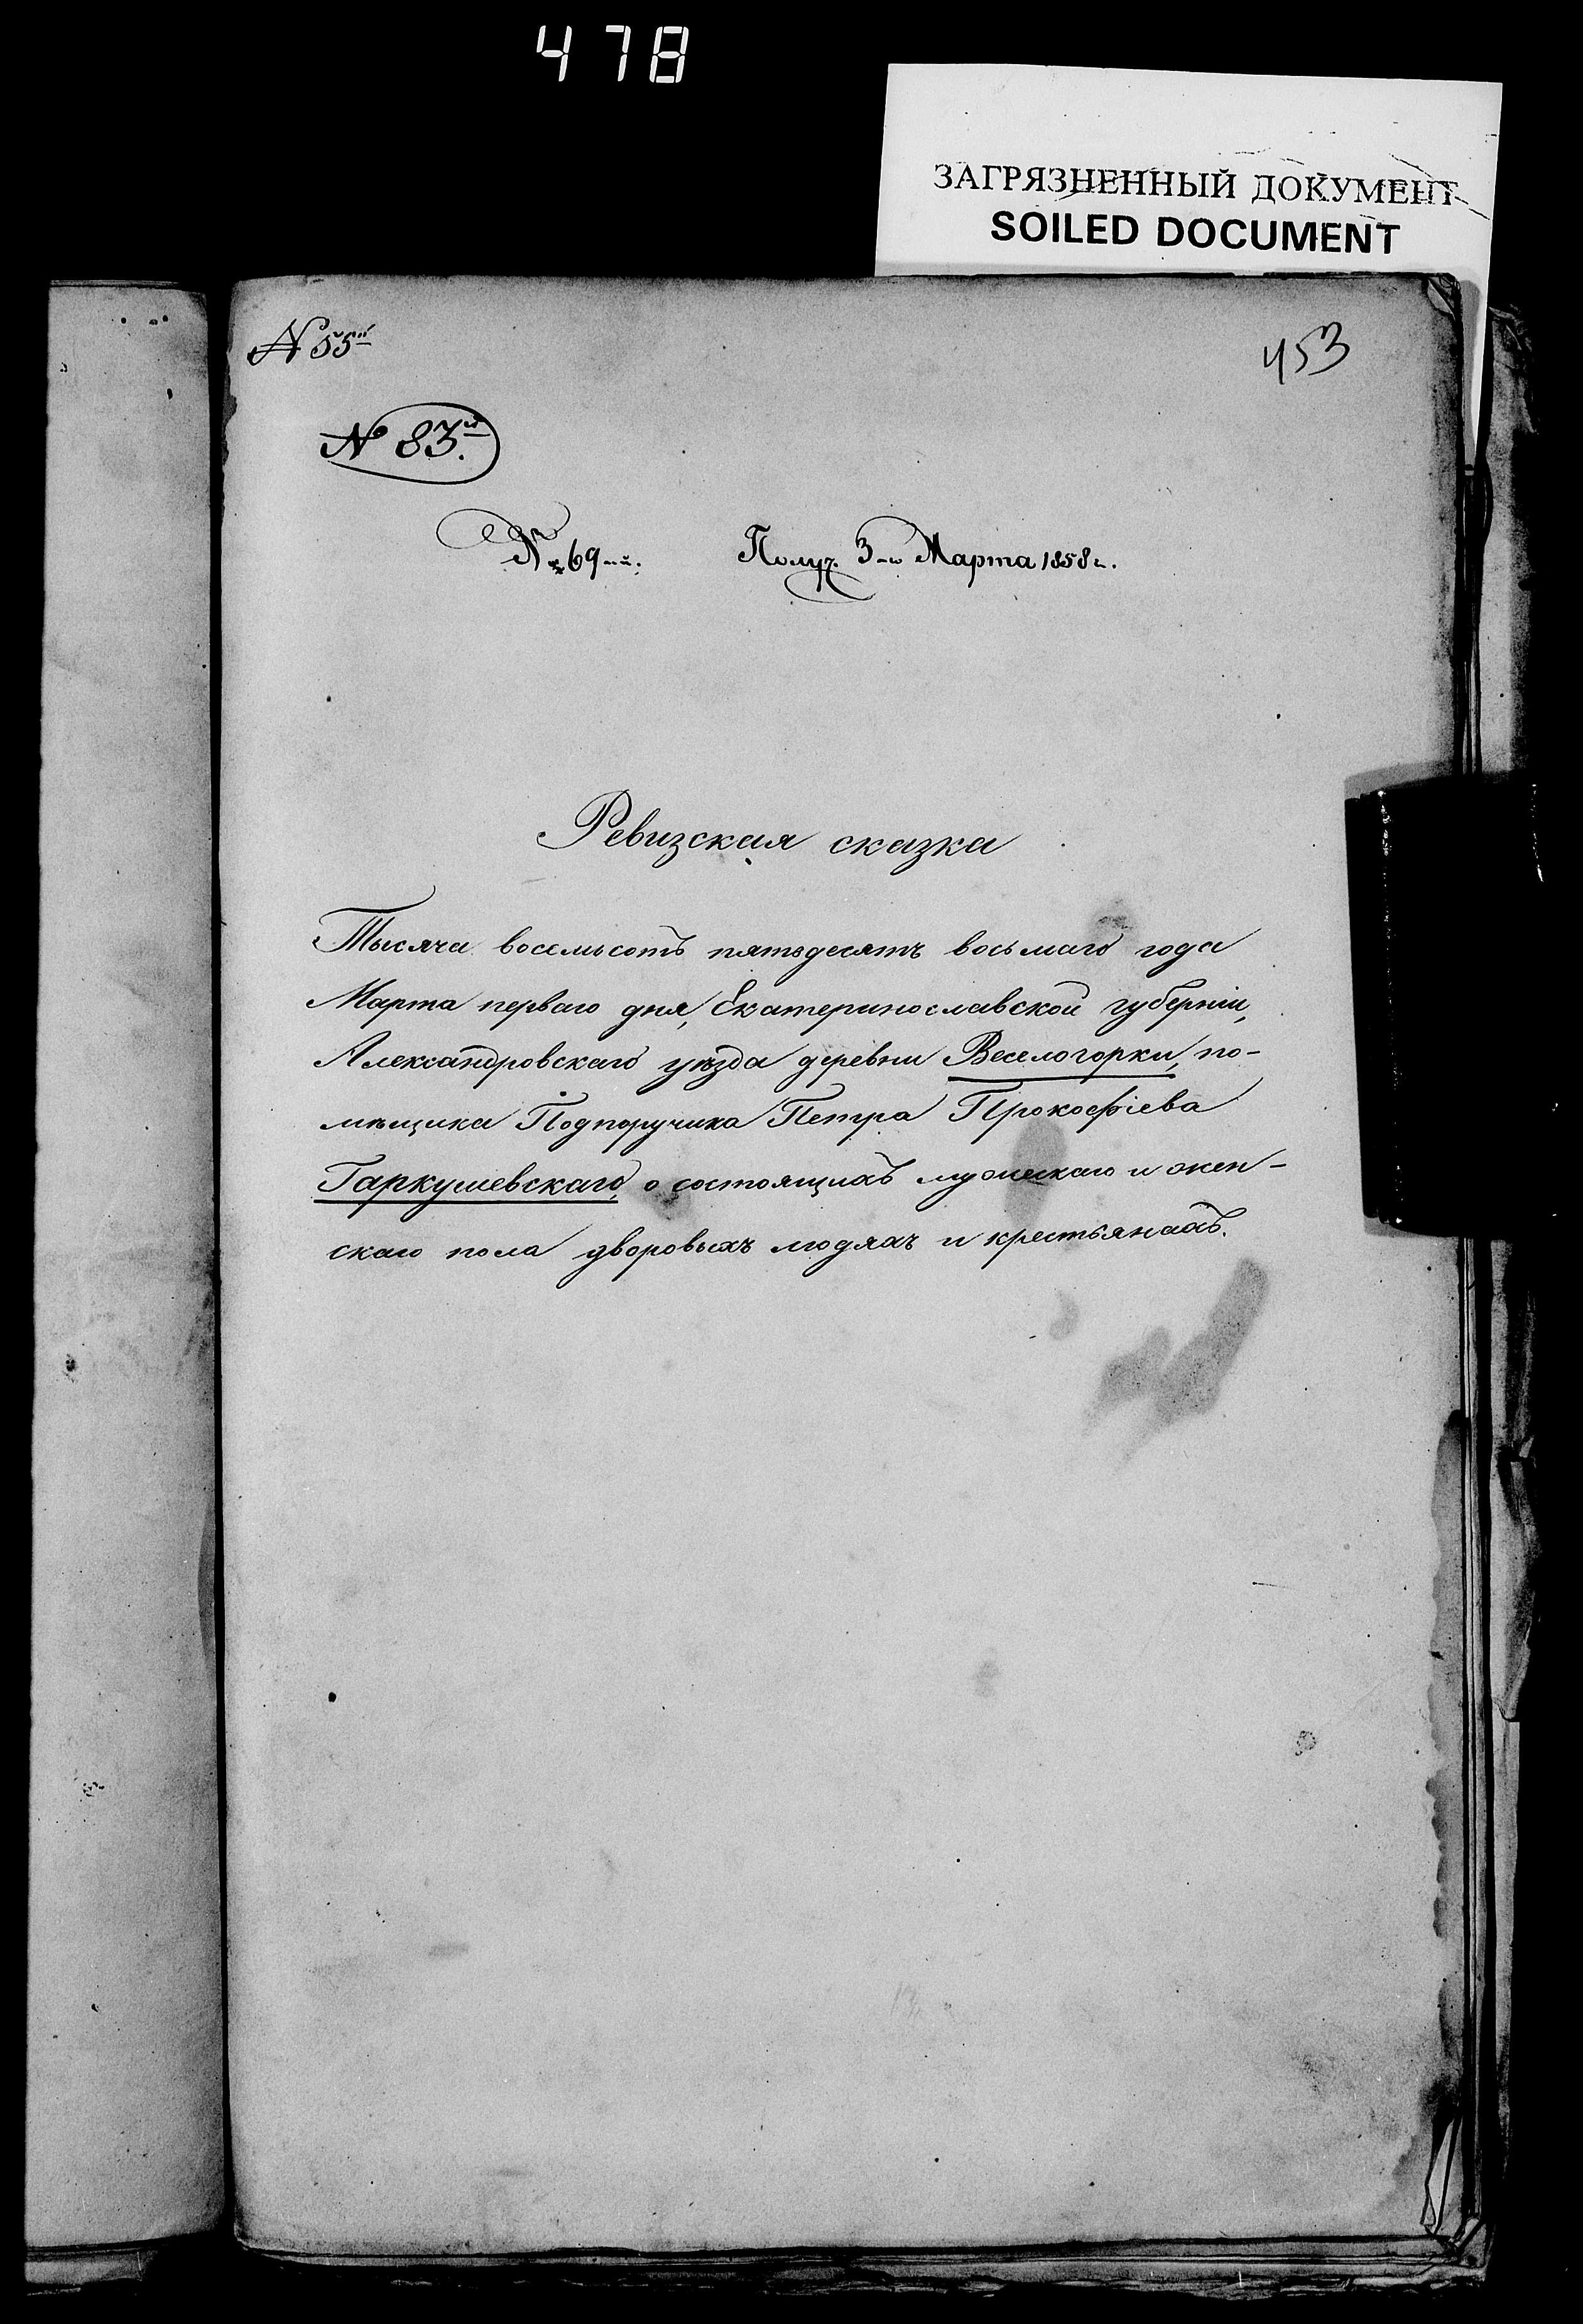 478
ЗАГРЯЗНЕННЫЙ ДОКУМЕНТ
SOILED DOCUMENT
N 55й
453
N 83.й
№ 69-й.
Получ. 3-го Марта 1858 г.
Ревизская сказка
Тысяча восемьсотъ пятьдесятъ восьмаго года
Марта перваго дня, Екатеринославской губерніи,
Александровскаго уѣзда деревни Веселогорки, по-
мѣщика Подпоручика Петра Прокофіева
Гаркушевскаго, о состоящихъ мужескаго и жен-
скаго пола дворовыхъ людяхъ и крестьянахъ.